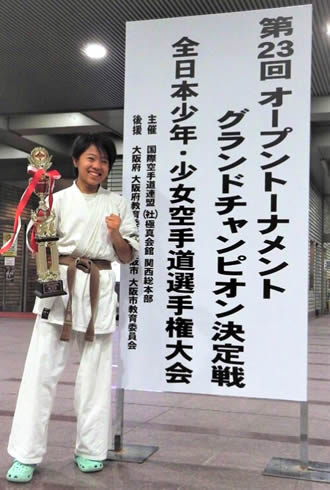 第23回 オープントーナメント
グランドチャンピオン決定戦
全日本少年・少女空手道選手権大会
主催 国際空手道連盟 (社)極真会館 関西総本部
後援 大阪府 大阪府教育委 大阪市 大阪市教育委員会